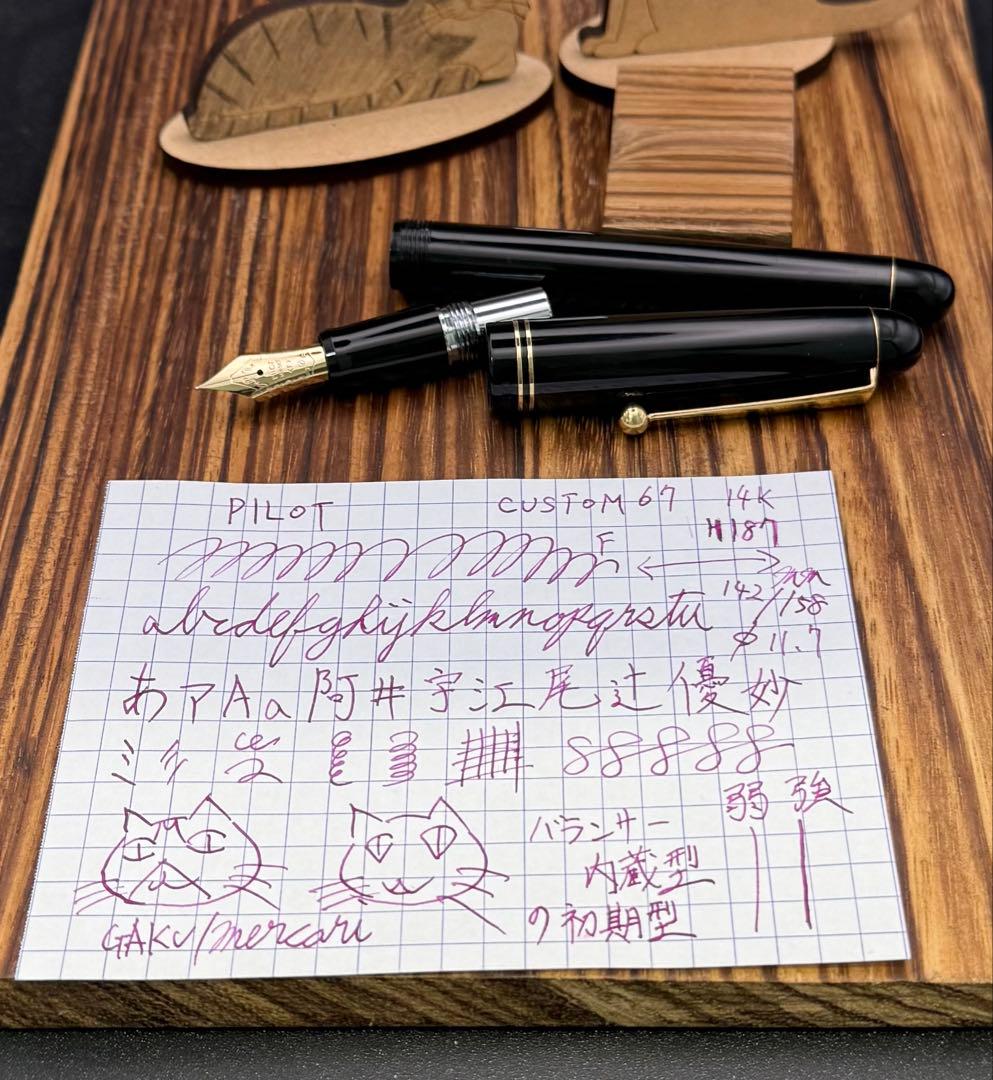 PILOT CUSTOM 67 14K
H187
F
142/158 mm
φ 11.7
abcdefghijklmnopqrstu
あ ア A a 阿 井 宇 江 尾 辻 優 妙
弱 強
バランサー
内蔵型
の初期型
GAKU/mercari